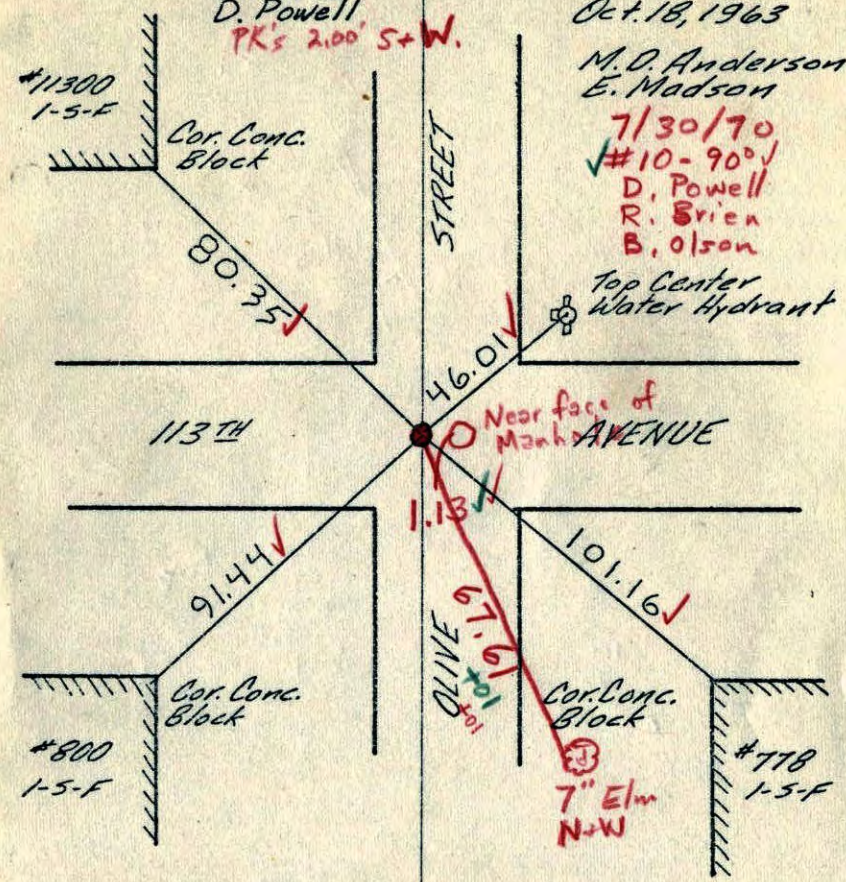 D. Powell
PK's 2.00' S+W.
Oct. 18, 1963
M.D. Anderson
E. Madson
7/30/70
✓#10-90°✓
D. Powell
R. Brien
B. Olson
#11300
1-S-F
Cor. Conc.
Block
STREET
Top Center
Water Hydrant
80.35✓
46.01✓
Near face of
113TH
AVENUE
1.13✓✓
91.44✓
67.61
101.16✓
OLIVE
10+
10+
Cor. Conc.
Block
Cor. Conc.
Block
#800
1-S-F
#778
1-S-F
7" Elm
N+W